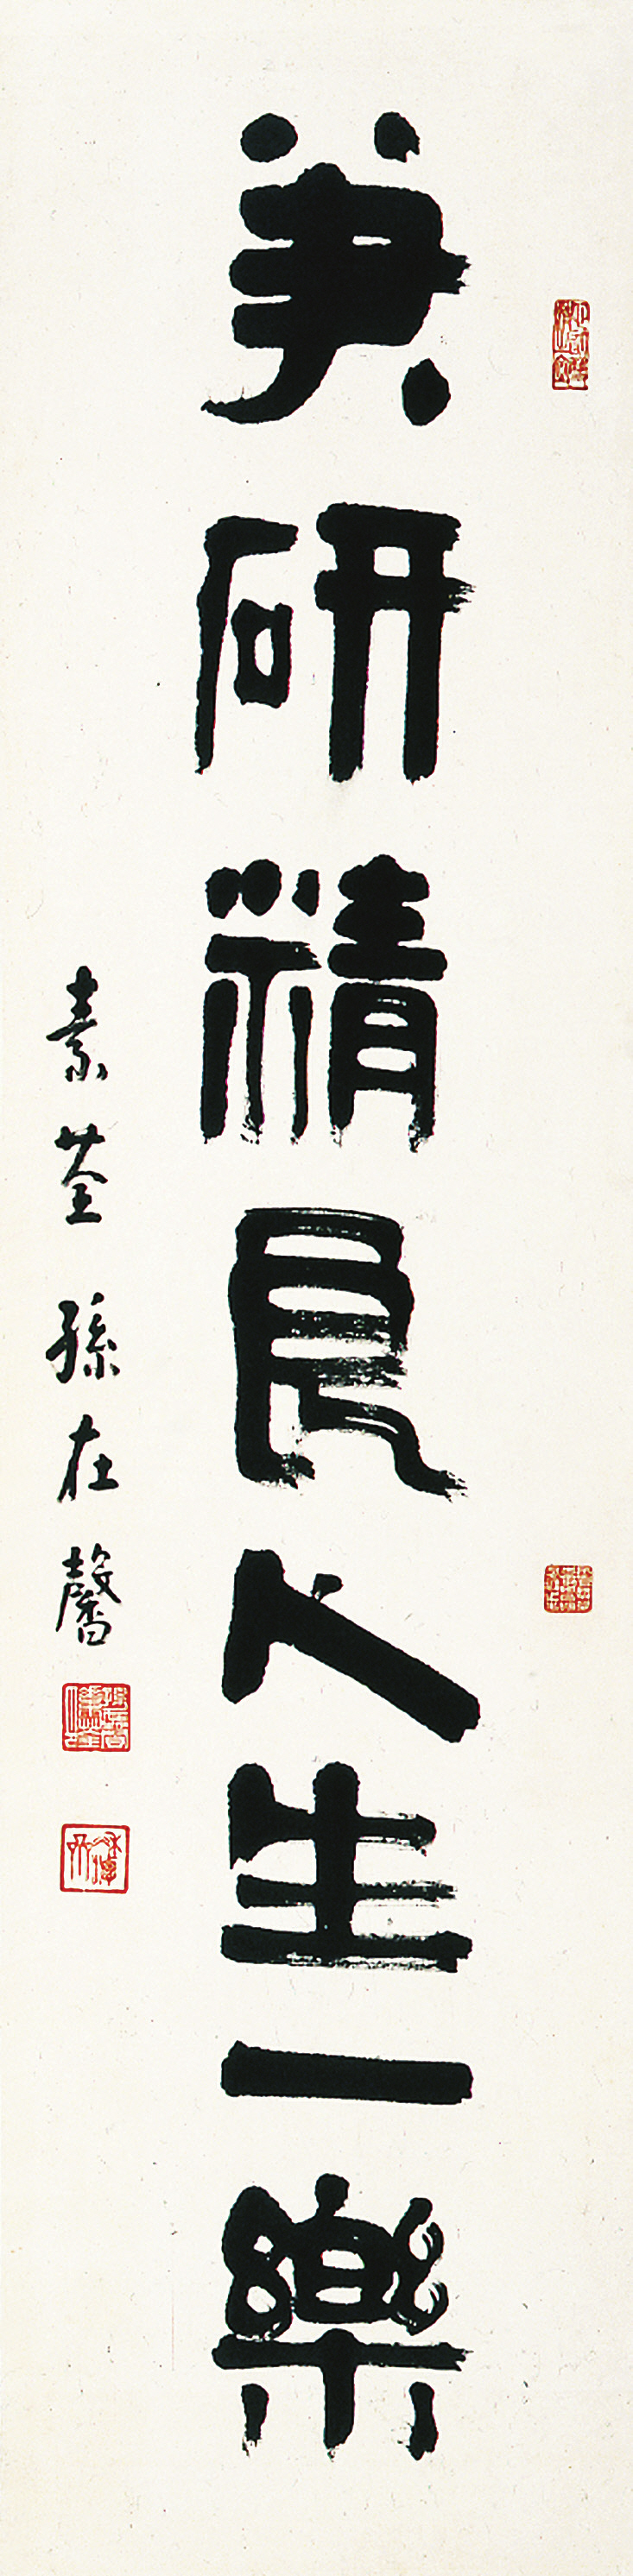 筆研精良人生一樂
素荃孫在馨